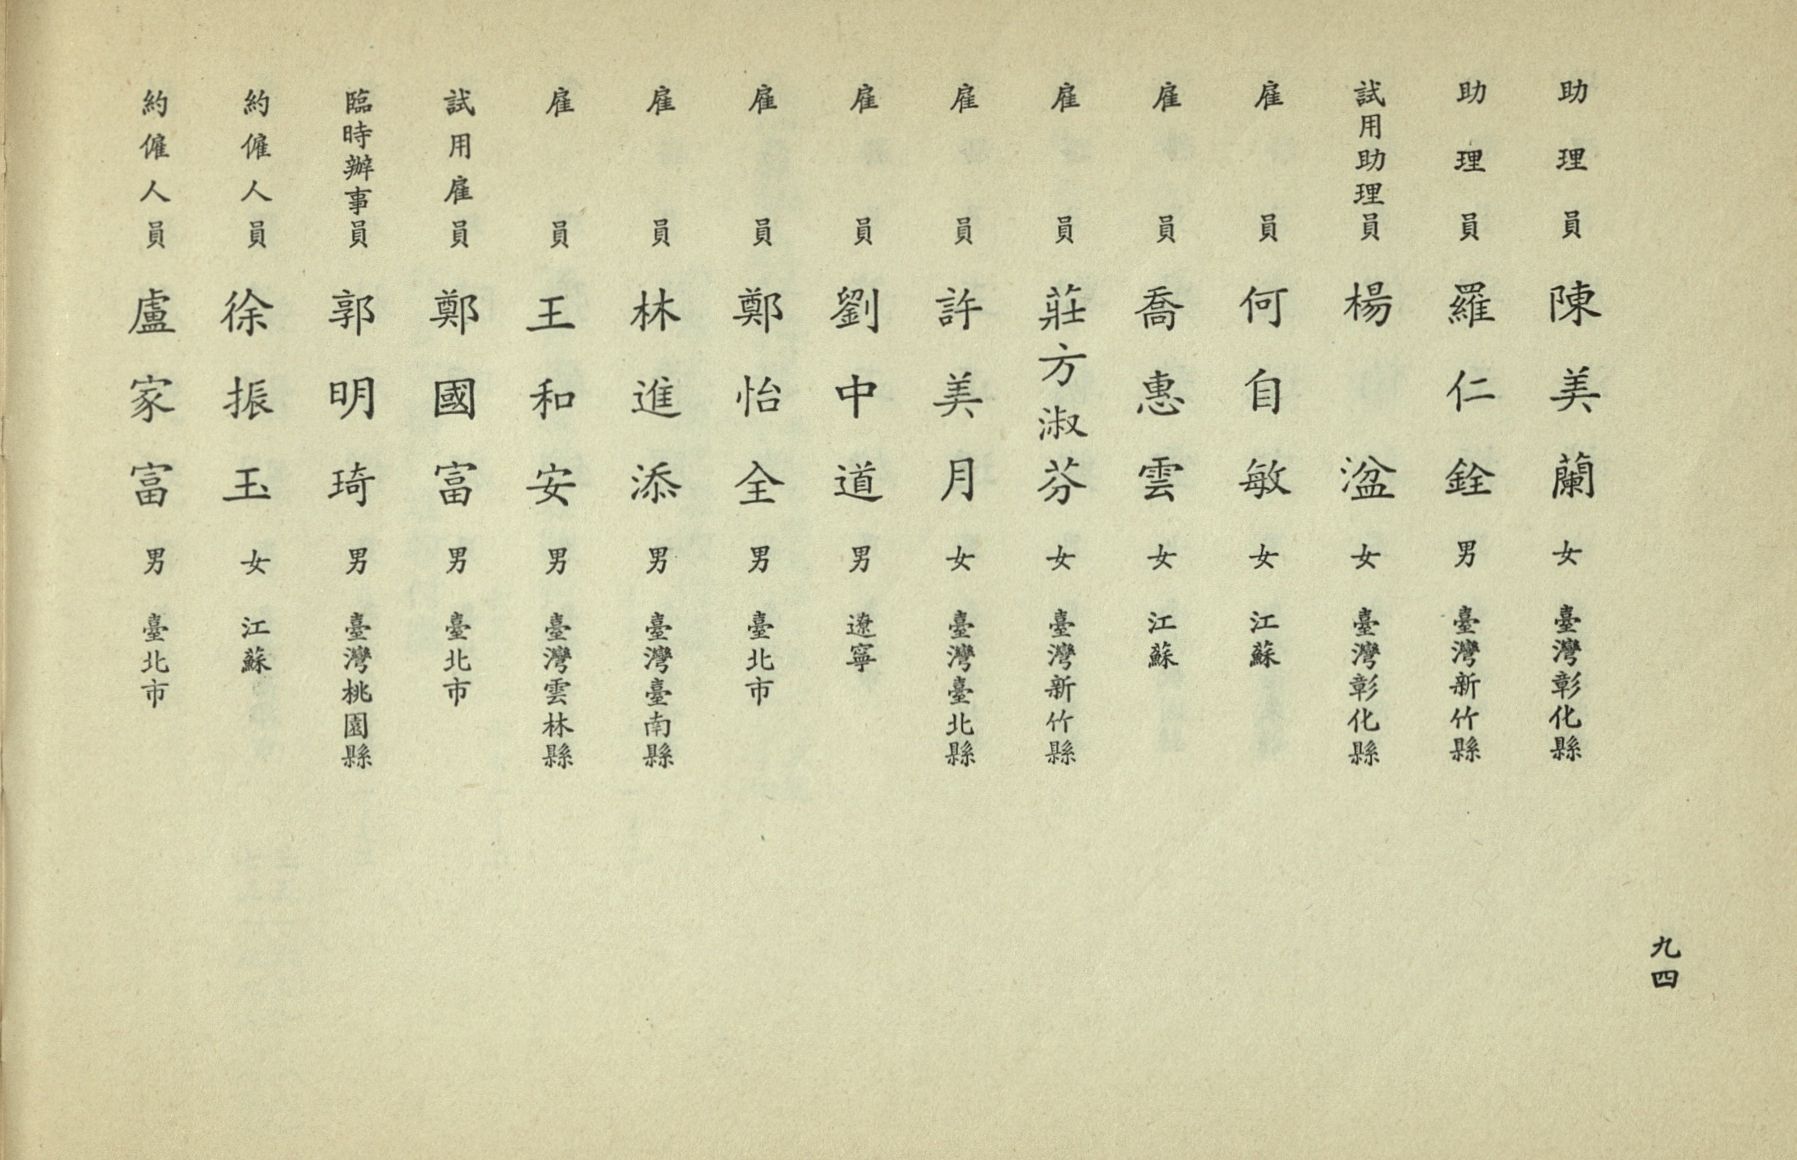 九四
助理員 陳美蘭 女 臺灣彰化縣
助理員 羅仁銓 男 臺灣新竹縣
試用助理員 楊湓 女 臺灣彰化縣
雇員 何自敏 女 江蘇
雇員 喬惠雲 女 江蘇
雇員 莊方淑芬 女 臺灣新竹縣
雇員 許美月 女 臺灣臺北縣
雇員 劉中道 男 遼寧
雇員 鄭怡全 男 臺北市
雇員 林進添 男 臺灣臺南縣
雇員 王和安 男 臺灣雲林縣
試用雇員 鄭國富 男 臺北市
臨時辦事員 郭明琦 男 臺灣桃園縣
約僱人員 徐振玉 女 江蘇
約僱人員 盧家富 男 臺北市